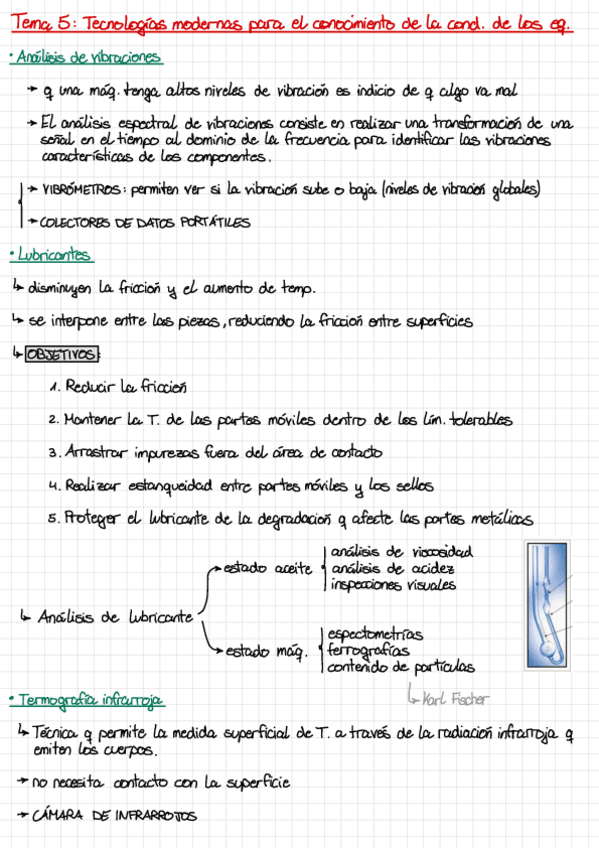 Tema 5: Tecnologías modernas para el conocimiento de la cond. de los eq.
· Análisis de vibraciones
→ q una máq. tenga altos niveles de vibración es indicio de q algo va mal
→ El análisis espectral de vibraciones consiste en realizar una transformación de una
señal en el tiempo al dominio de la frecuencia para identificar las vibraciones
características de los componentes.
→ VIBRÓMETROS: permiten ver si la vibración sube o baja (niveles de vibración globales)
→ COLECTORES DE DATOS PORTÁTILES
· Lubricantes
↳ disminuyen la fricción y el aumento de temp.
↳ se interpone entre las piezas, reduciendo la fricción entre superficies
↳ OBJETIVOS:
1. Reducir la fricción
2. Mantener la T. de las partes móviles dentro de los lím. tolerables
3. Arrastrar impurezas fuera del área de contacto
4. Realizar estanqueidad entre partes móviles y los sellos
5. Proteger el lubricante de la degradación q afecte las partes metálicas
↳ Análisis de lubricante
→ estado aceite
análisis de viscosidad
análisis de acidez
inspecciones visuales
→ estado máq.
espectometrías
ferrografías
contenido de partículas
↳ Karl Fischer
· Termografía infrarroja
↳ Técnica q permite la medida superficial de T. a través de la radiación infrarroja q
emiten los cuerpos.
→ no necesita contacto con la superficie
→ CÁMARA DE INFRARROJOS